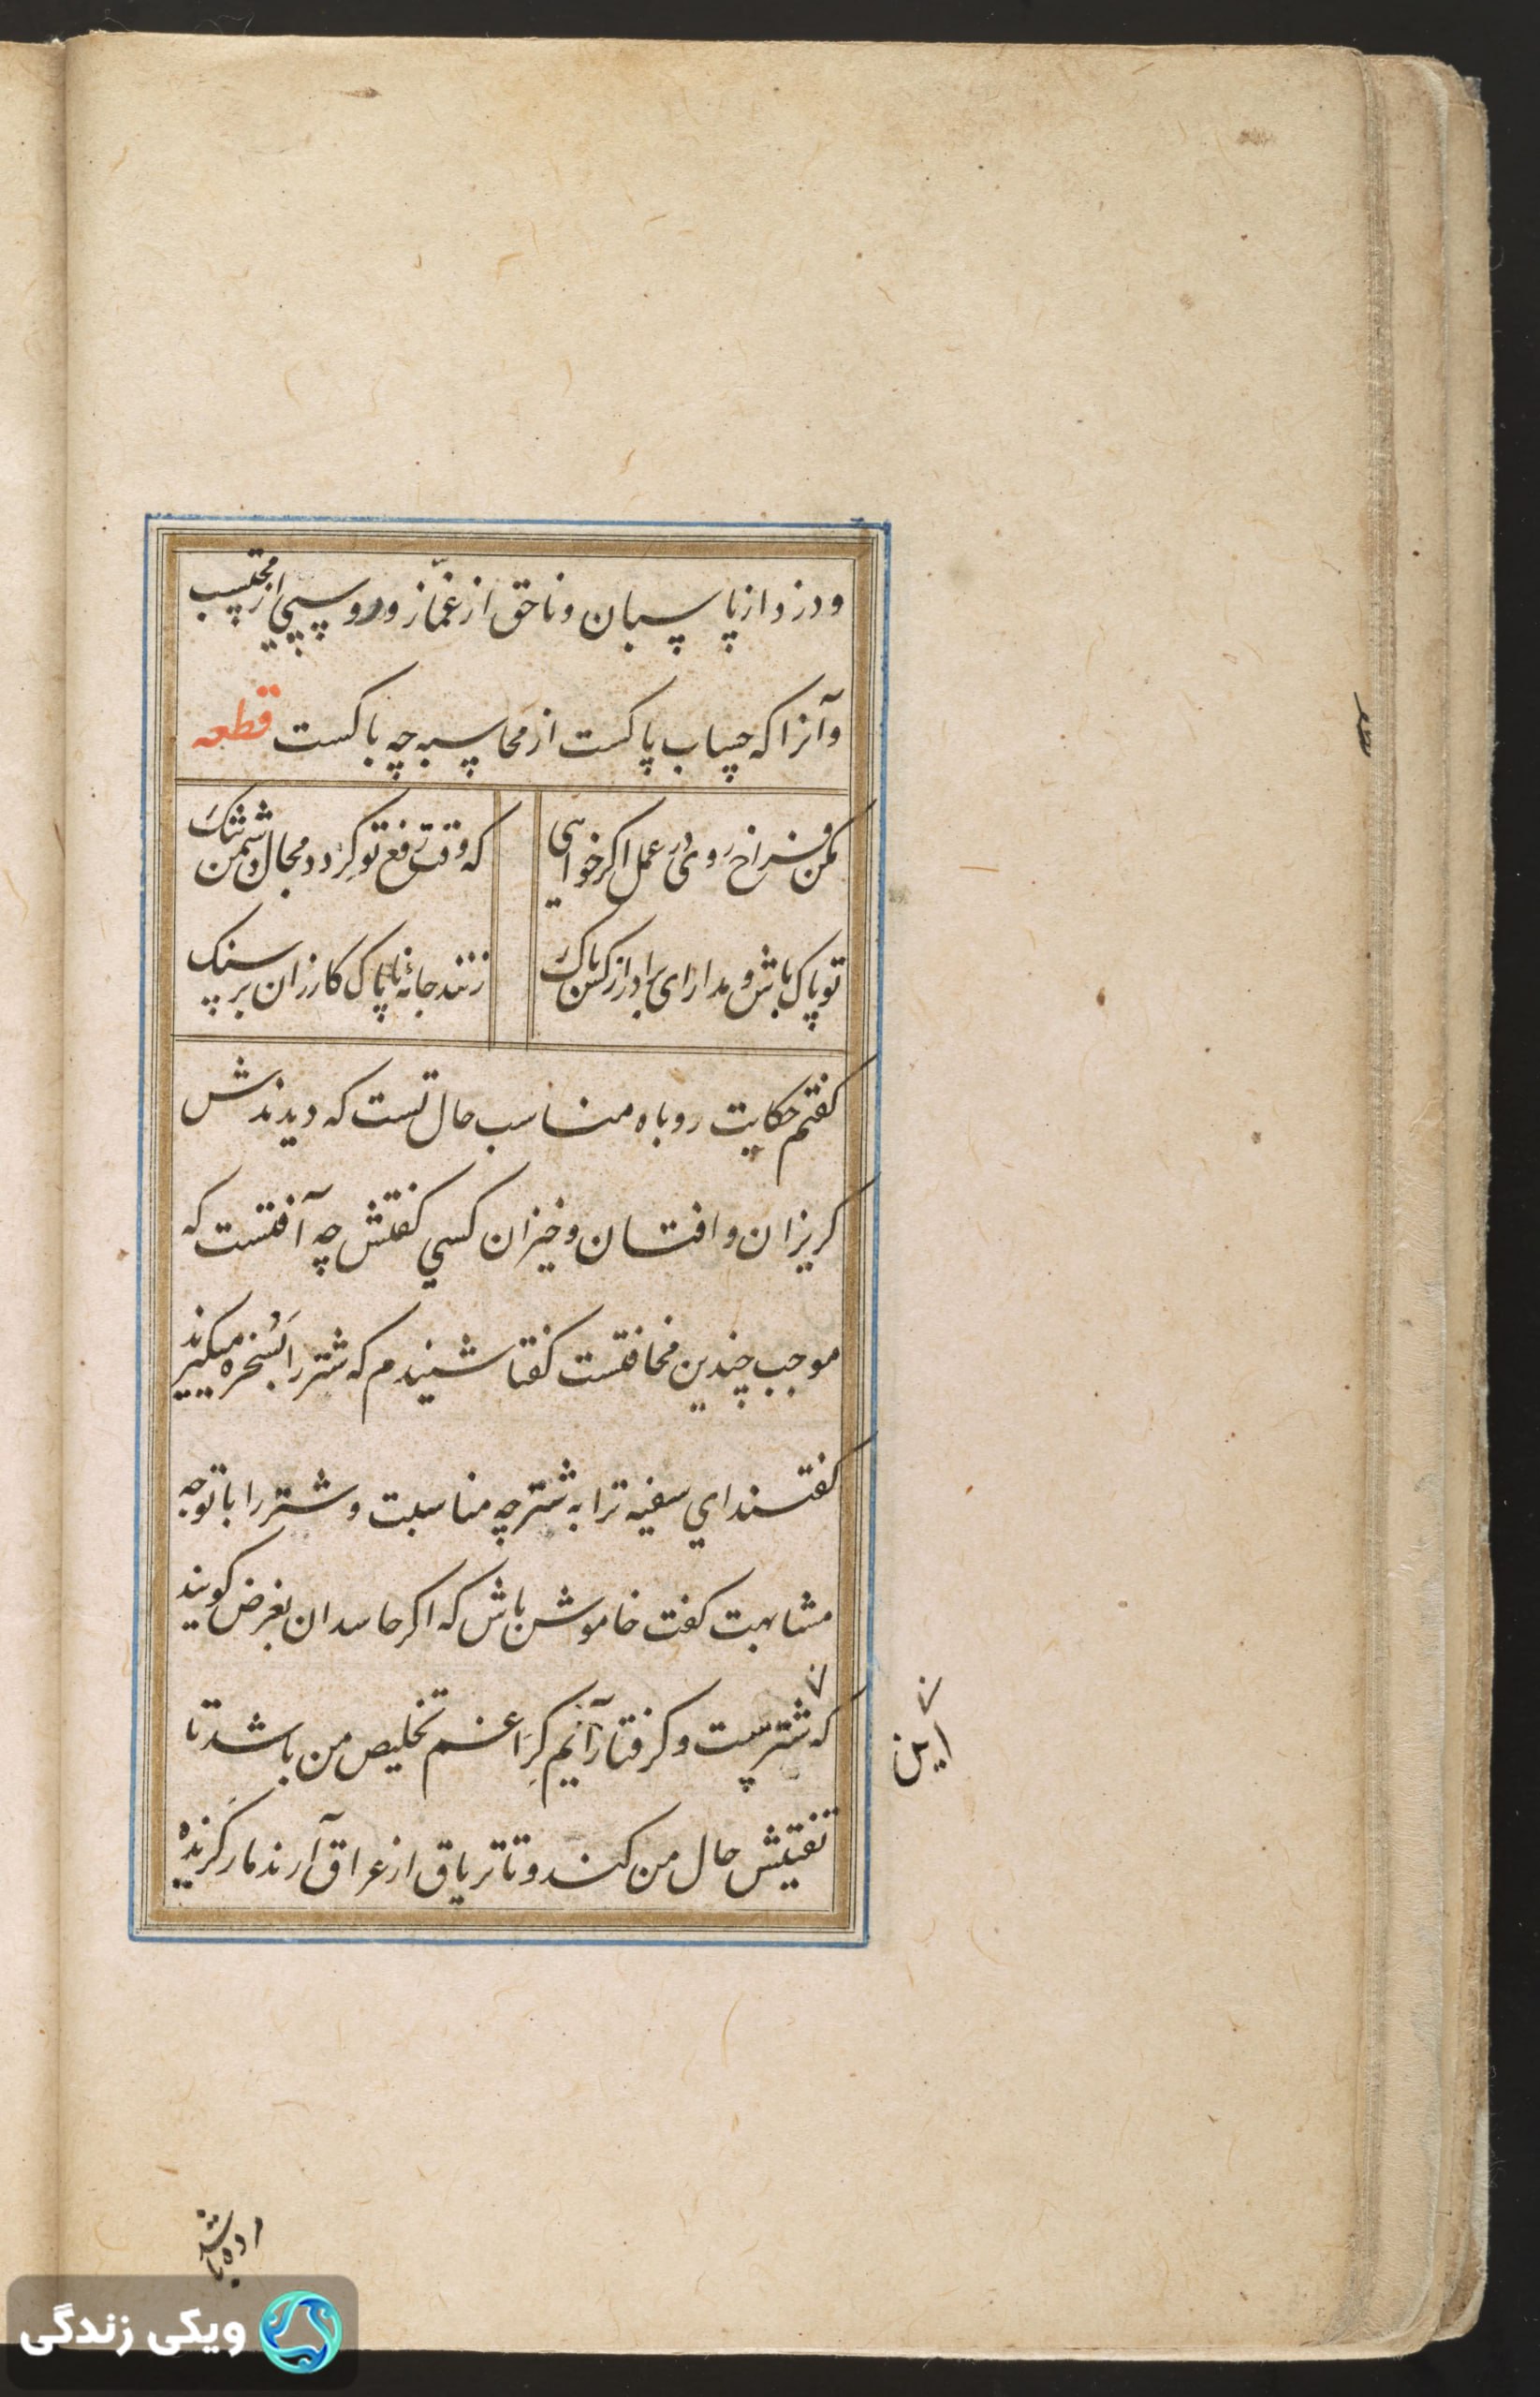 ودزد از پاسبان وناحق از غمّاز و روسپی از محتسب
وآنرا که حساب پاکست از محاسبه چه باکست قطعه
مکن فراخ روی در عمل اکر خواهی
که وقت رفع تو کردد مجال دشمن تنک
تو پاک باش و مدار ای برادر از کس باک
زنند جامهٔ ناپاک کازران بر سنک
کفتم حکایت روباه مناسب حال تست که دیدندش
کریزان و افتان و خیزان کسی کفتش چه آفتست که
موجب چندین مخافتست کفتا شنیدم که شتر را بسُخره میکیرند
کفتند ای سفیه ترا به شتر چه مناسبت و شتر را با تو چه
مشابهت کفت خاموش باش که اکر حاسدان بغرض کویند
که شترست و کرفتار آیم کرا غم تخلیص من باشد تا
این
تفتیش حال من کند و تا تریاق از عراق آرند مار کزیده
ویکی زندگی